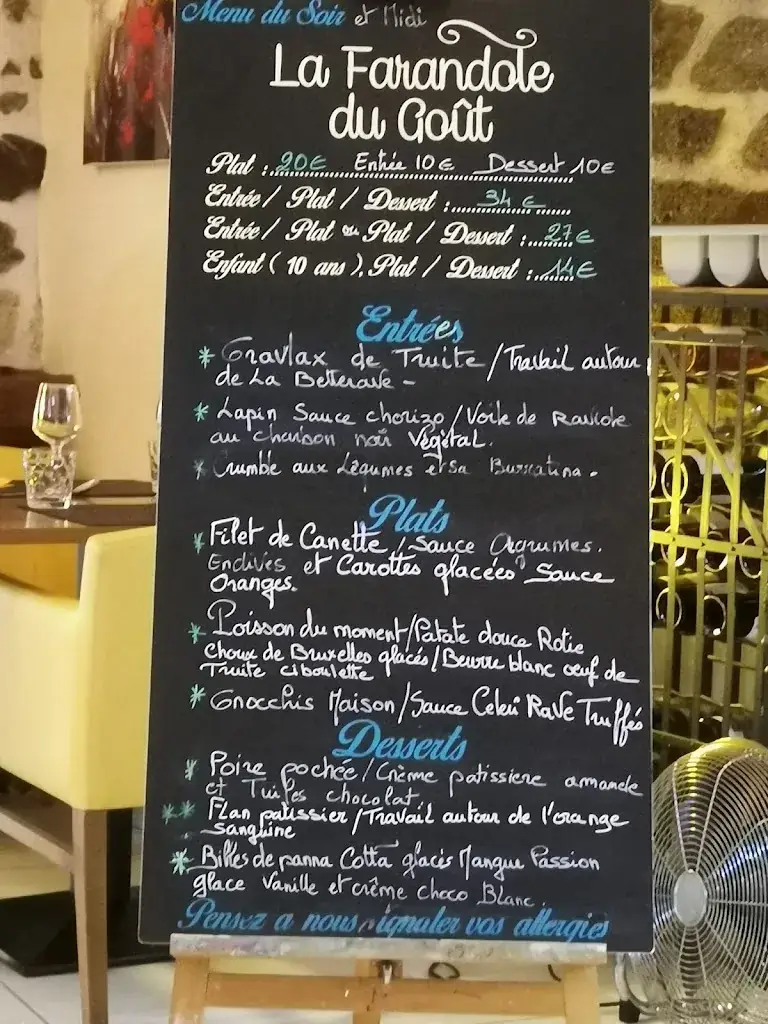 Menu du Soir et Midi
La Farandole
du Goût
Plat : 20€ Entrée 10€ Dessert 10€
Entrée / Plat / Dessert : 34 €
Entrée / Plat ou Plat / Dessert : 27€
Enfant ( 10 ans ), Plat / Dessert : 14€
Entrées
* Gravlax de Truite / Travail autour
de La Betterave -
* Lapin Sauce chorizo / Voile de Raviole
au charbon noir Végétal.
* Crumble aux Légumes et Sa Burratina -
Plats
* Filet de Canette / Sauce Agrumes.
Endives et Carottes glacées Sauce
Oranges.
* Poisson du moment / Patate douce Rotie
choux de Bruxelles glacés / Beurre blanc oeuf de
Truite ciboulette
* Gnocchis Maison / Sauce Celeri Rave Truffés
Desserts
* Poire pochée / Crème patissiere amande
et Tuiles chocolat.
** Flan patissier / Travail autour de l'orange
sanguine
* Billes de panna Cotta glacés Mangue Passion
glace Vanille et crème choco Blanc.
Pensez a nous signaler vos allergies